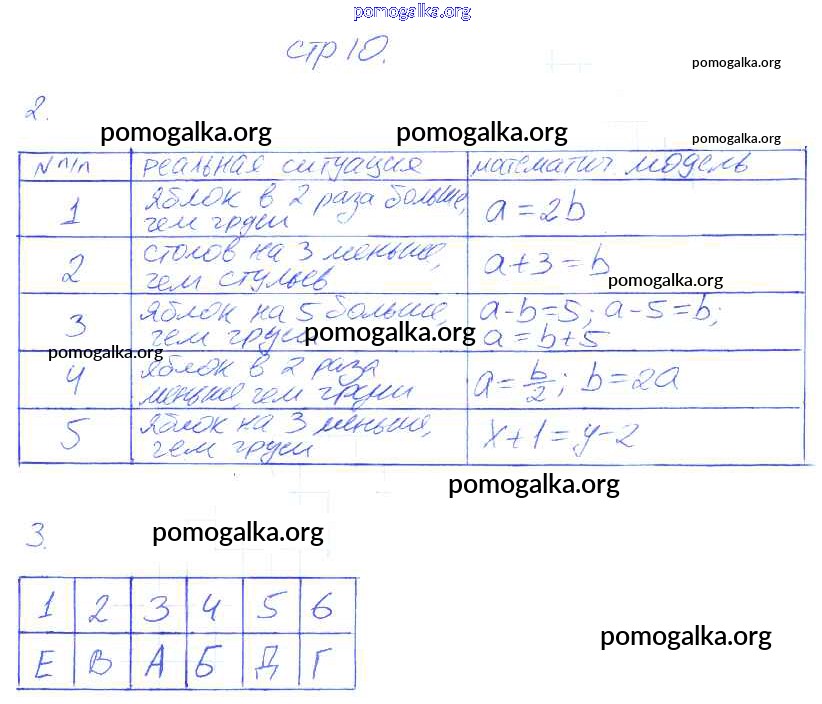 pomogalka.org
стр 10.
pomogalka.org
2.
pomogalka.org pomogalka.org pomogalka.org
N п/п реальная ситуация математич. модель
1 яблок в 2 раза больше, чем груш a = 2b
2 столов на 3 меньше, чем стульев a + 3 = b
pomogalka.org
3 яблок на 5 больше, чем груш a - b = 5; a - 5 = b; a = b + 5
pomogalka.org
pomogalka.org
4 яблок в 2 раза меньше, чем груши a = b/2; b = 2a
5 яблок на 3 меньше, чем груш x + 1 = y - 2
pomogalka.org
3. pomogalka.org
1 2 3 4 5 6
Е В А Б Д Г
pomogalka.org